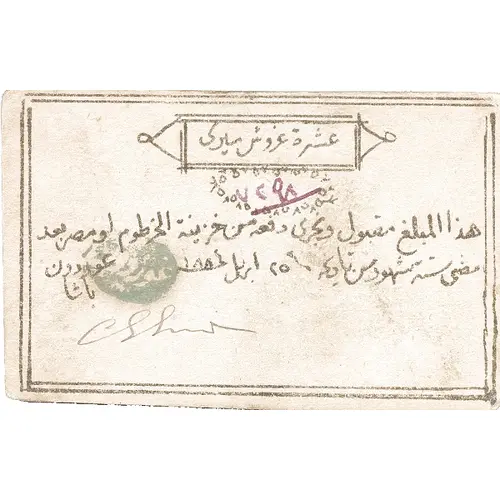 عشرة غروش ميري
٧٢٩٨
هذا المبلغ مقبول ويجرى دفعه من خزينة الخرطوم او مصر بعد
مضى ستة شهور من تاريخه ٢٥ ابريل ١٨٨٤ غوردون
باشا